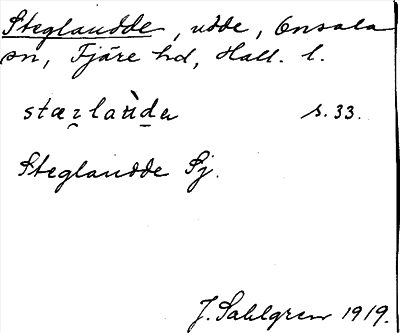 Steglaudde, udde, Onsala
sn, Fjäre hd, Hall. l.
s. 33.
Steglaudde Sj.
J. Sahlgren 1919.